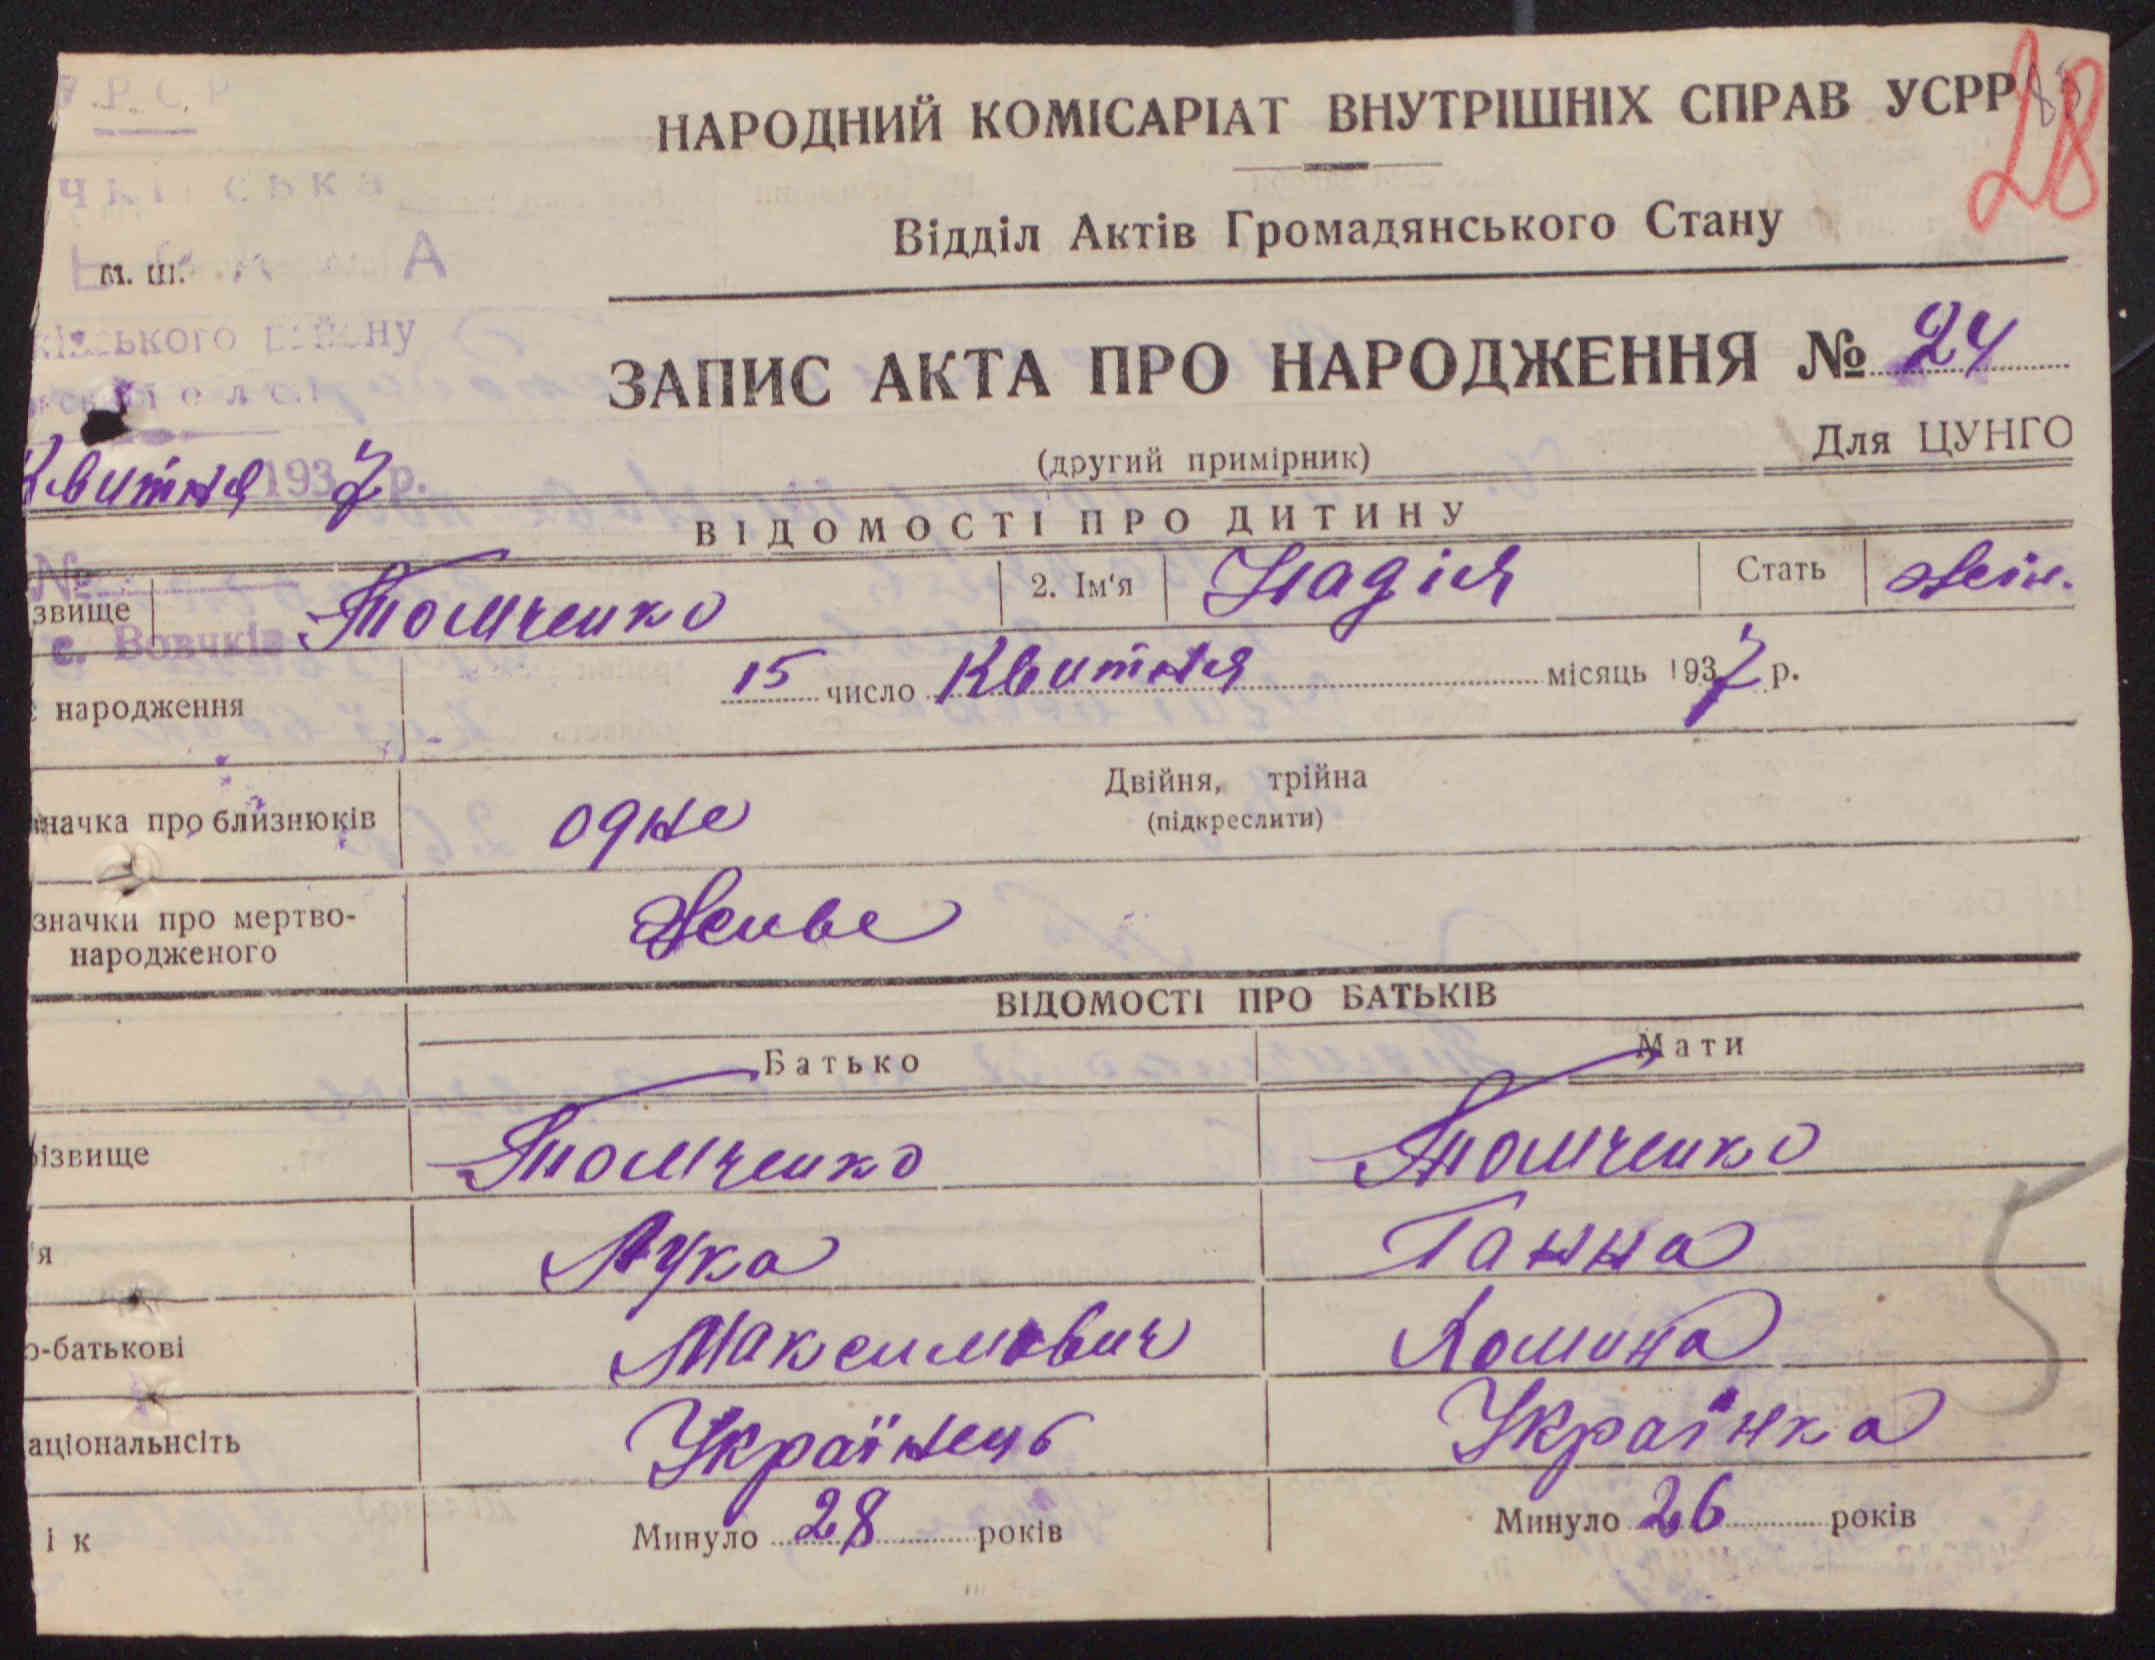 Р. С. Р
НАРОДНИЙ КОМІСАРІАТ ВНУТРІШНІХ СПРАВ УСРР
28
Відділ Актів Громадянського Стану
м. ш.
ЗАПИС АКТА ПРО НАРОДЖЕННЯ № 24
(другий примірник) Для ЦУНГО
Квитня 1937 р.
ВІДОМОСТІ ПРО ДИТИНУ
№
звище Томченко 2. Ім'я Надія Стать жін.
с. Вовчків
народження 15 число Квитня місяць 1937 р.
значка про близнюків одне Двійня, трійна
(підкреслити)
значки про мертво-
народженого живе
ВІДОМОСТІ ПРО БАТЬКІВ
Батько Мати
різвище Томченко Томченко
'я Лука Ганна
о-батькові Максимович
аціональнсіть Українець Українка
ік Минуло 28 років Минуло 26 років
5